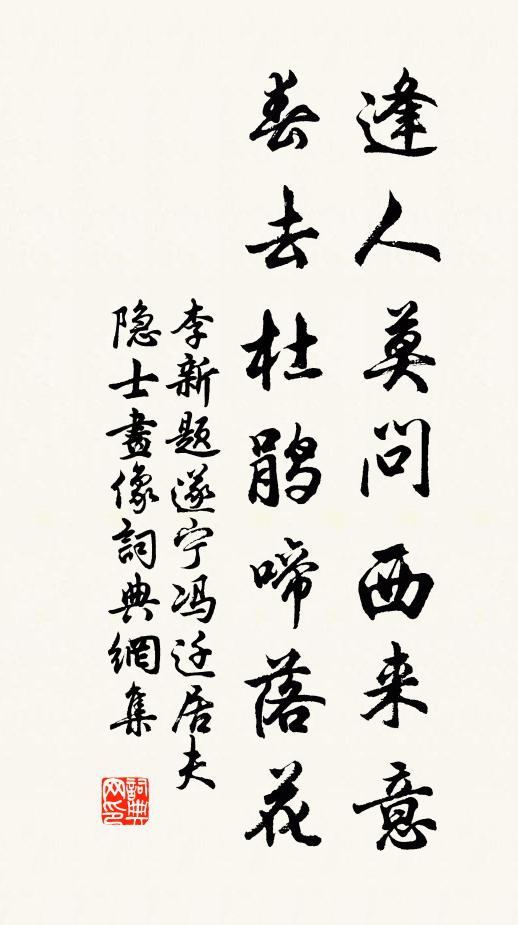 逢人莫问西来意
春去杜鹃啼落花
李新题遂宁冯迁居夫
隐士畫像詞典網集
詞典
网印